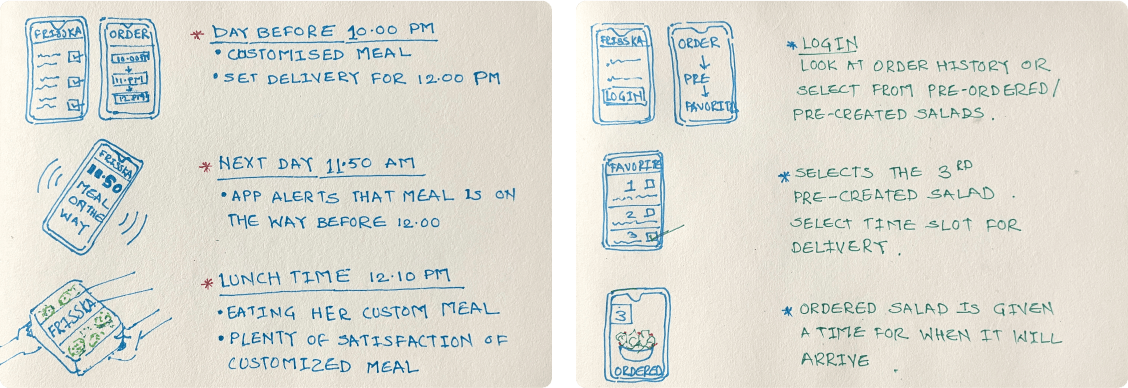 FRISSKA
ORDER
10:00PM
11:PM
12.PM
* DAY BEFORE 10.00 PM
• CUSTOMISED MEAL
• SET DELIVERY FOR 12.00 PM
FRISSKA
11.50
MEAL
ON THE
WAY
* NEXT DAY 11.50 AM
• APP ALERTS THAT MEAL IS ON
THE WAY BEFORE 12.00
FRISSKA
* LUNCH TIME 12.10 PM
• EATING HER CUSTOM MEAL
• PLENTY OF SATISFACTION OF
CUSTOMIZED MEAL
FRISSKA
LOGIN
ORDER
PRE
FAVORITE
* LOGIN
LOOK AT ORDER HISTORY OR
SELECT FROM PRE-ORDERED/
PRE-CREATED SALADS.
FAVORITE
1
2
3
* SELECTS THE 3RD
PRE-CREATED SALAD.
SELECT TIME SLOT FOR
DELIVERY.
3
ORDERED
* ORDERED SALAD IS GIVEN
A TIME FOR WHEN IT WILL
ARRIVE.